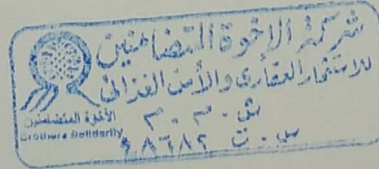 شركة الاخوة المتضامنين
للاستثمار العقاري والأمن الغذائي
ش.م.م
س.ت ٦٨٦٨٢
الأخوة المتضامنين
Brothers Solidarity